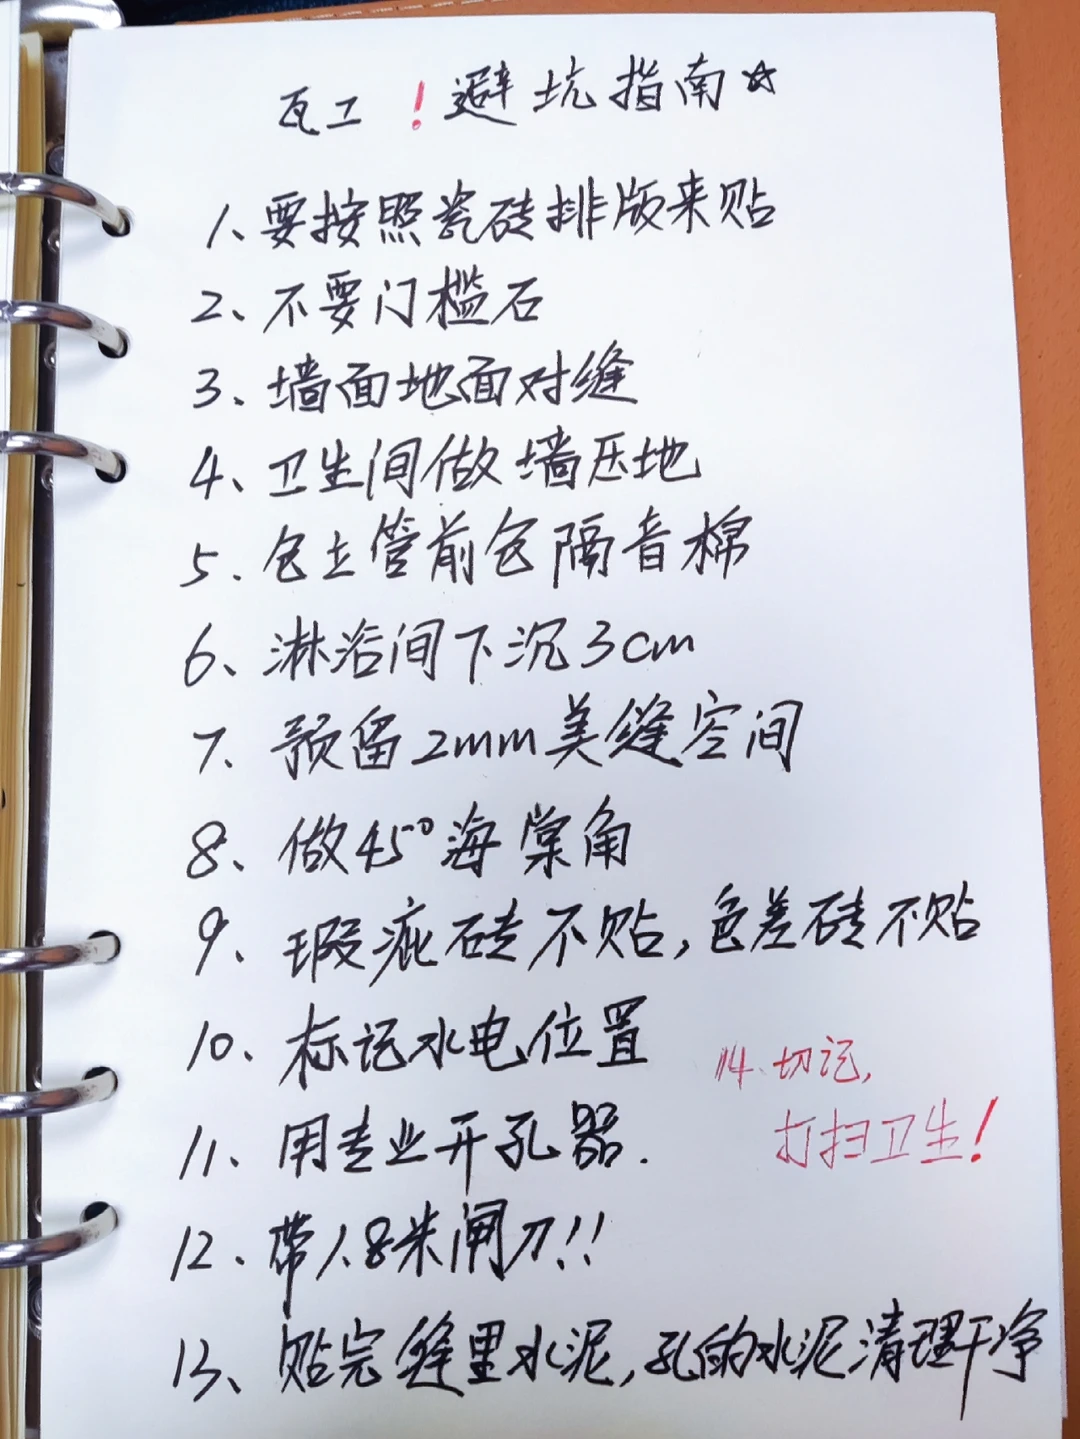 瓦工！避坑指南☆
1、要按照瓷砖排版来贴
2、不要门槛石
3、墙面地面对缝
4、卫生间做墙压地
5.包土管前包隔音棉
6、淋浴间下沉3cm
7、预留2mm美缝空间
8、做45°海棠角
9、瑕疵砖不贴,色差砖不贴
10、标记水电位置
11、用专业开孔器.
12、带1.8米闸刀!!
13、贴完缝里水泥,孔的水泥清理干净
14.切记,
打扫卫生!